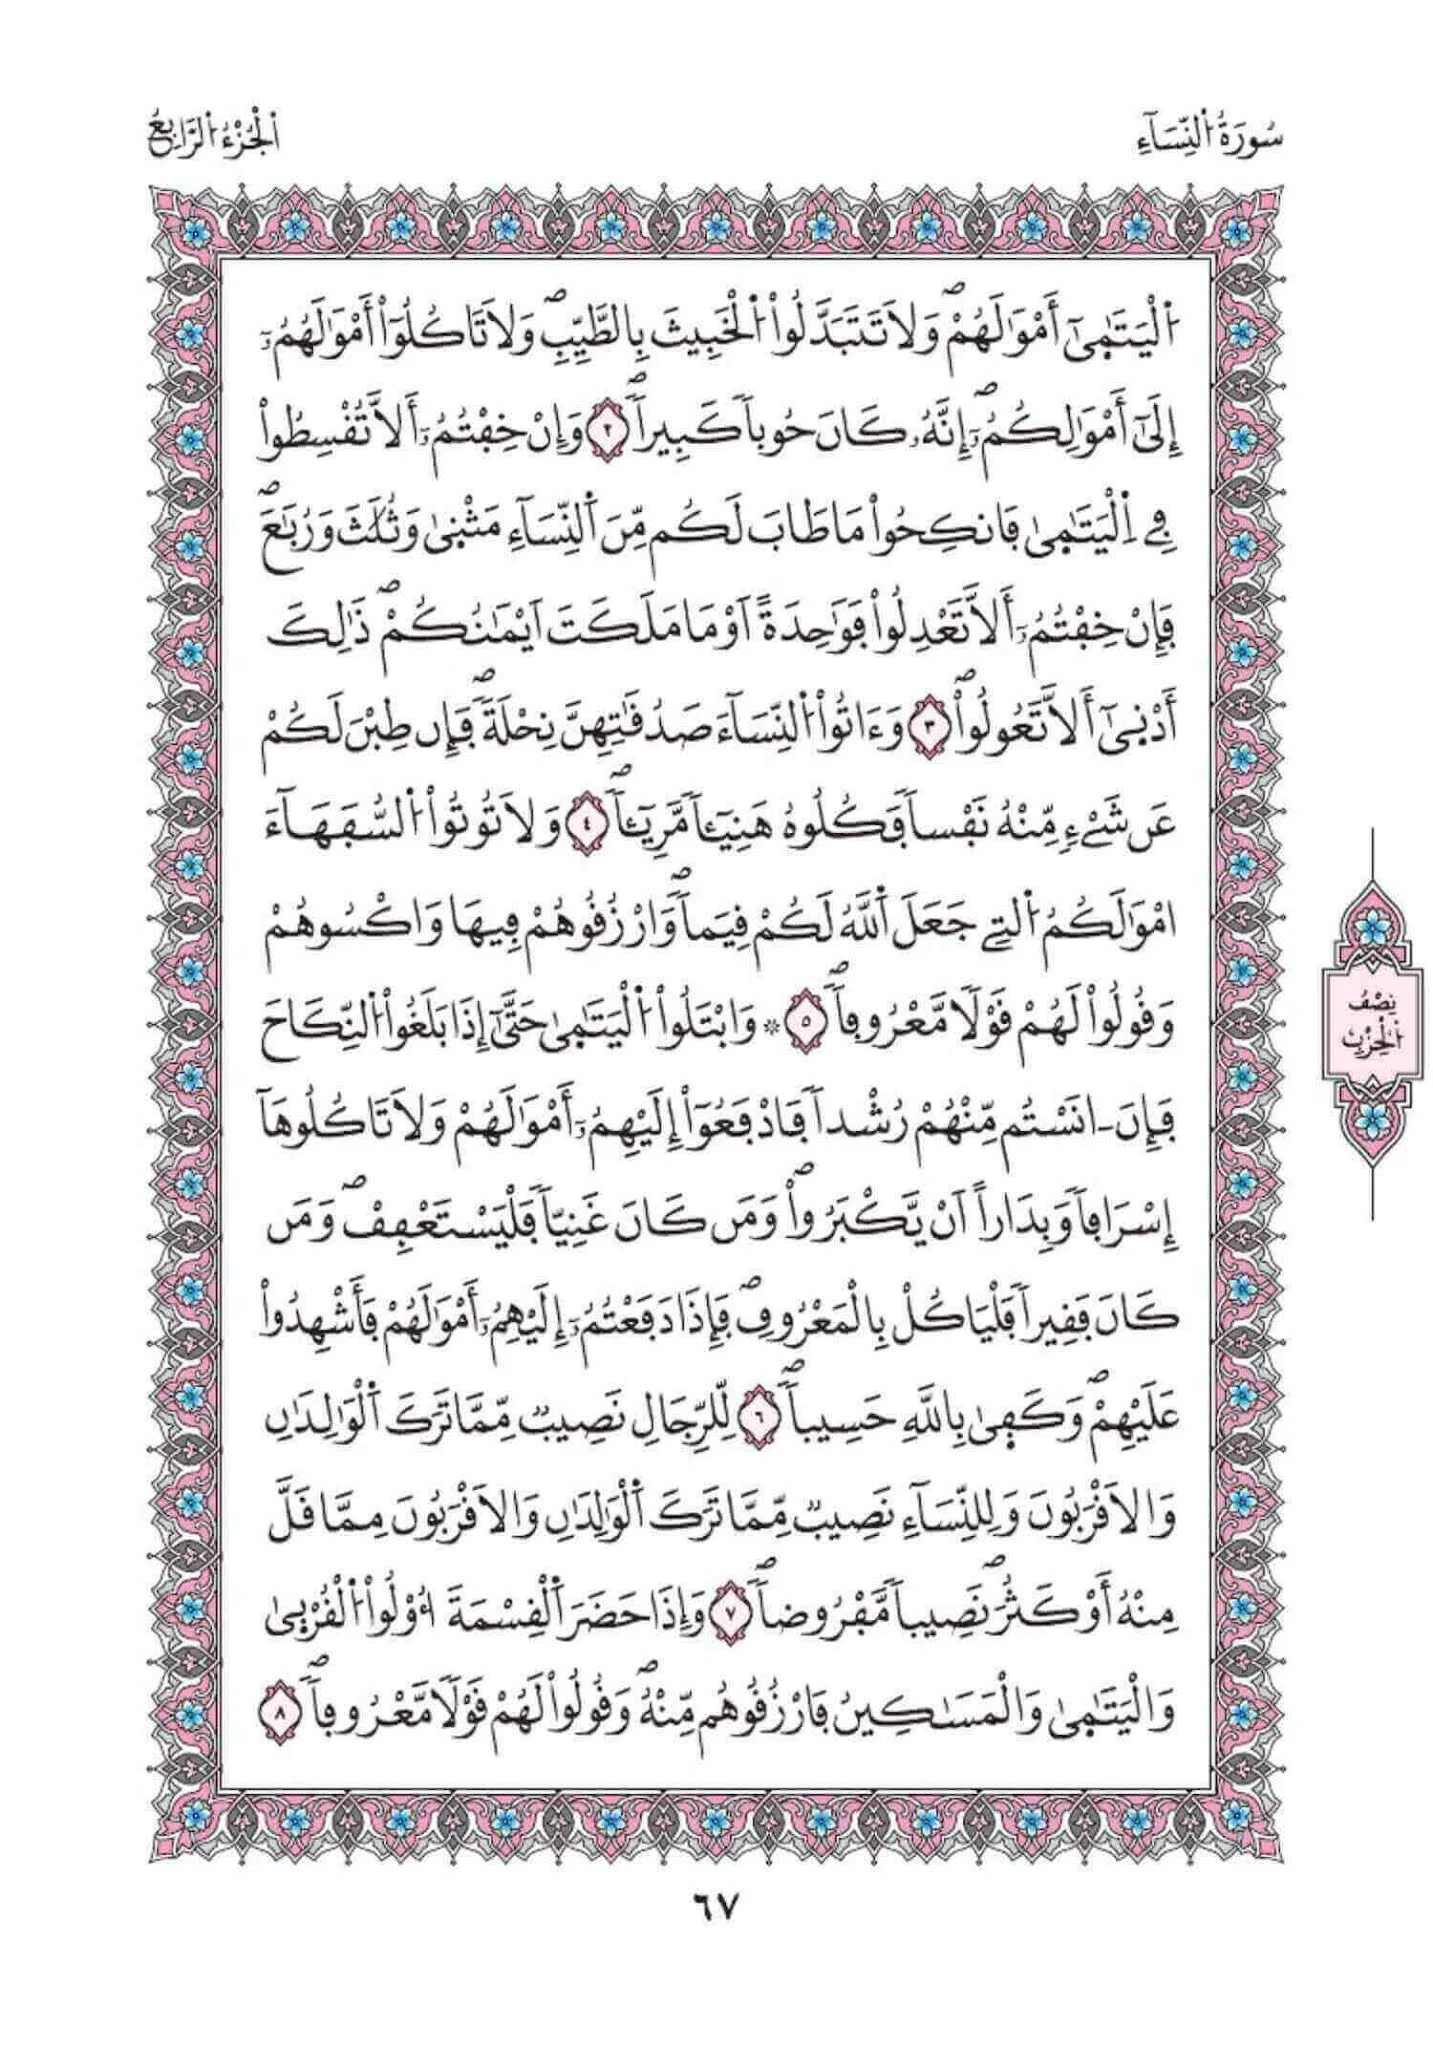 سُورَةُ اُ۬لنِّسَآءِ
اَ۬لْجُزْءُ اُ۬لرَّابِعُ
اُ۬لْيَتَٰمَىٰٓ أَمْوَٰلَهُمْۖ وَلَا تَتَبَدَّلُواْ اُ۬لْخَبِيثَ بِالطَّيِّبِۖ وَلَا تَاكُلُوٓاْ أَمْوَٰلَهُمُۥٓ
إِلَىٰٓ أَمْوَٰلِكُمُۥٓۖ إِنَّهُۥ كَانَ حُوباٗ كَبِيراٗۖ ٢ وَإِنْ خِفْتُمُۥٓ أَلَّا تُقْسِطُواْ
فِے اِ۬لْيَتَٰمَىٰ فَانكِحُواْ مَا طَابَ لَكُم مِّنَ اَ۬لنِّسَآءِ مَثْنَىٰ وَثُلَٰثَ وَرُبَٰعَۖ
فَإِنْ خِفْتُمُۥٓ أَلَّا تَعْدِلُواْ فَوَٰحِدَةً اَوْ مَا مَلَكَتَ اَيْمَٰنُكُمْۖ ذَٰلِكَ
أَدْنَىٰٓ أَلَّا تَعُولُواْۖ ٣ وَءَاتُواْ اُ۬لنِّسَآءَ صَدُقَٰتِهِنَّ نِحْلَةٗۖ فَإِن طِبْنَ لَكُمْ
عَن شَےْءٖ مِّنْهُ نَفْساٗ فَكُلُوهُ هَنِيٓـٔاٗ مَّرِيٓـٔاٗۖ ٤ وَلَا تُوتُواْ اُ۬لسُّفَهَآءَ
امْوَٰلَكُمُ اُ۬لتِے جَعَلَ اَ۬للَّهُ لَكُمْ قِيَماٗۖ وَارْزُقُوهُمْ فِيهَا وَاكْسُوهُمْ
وَقُولُواْ لَهُمْ قَوْلاٗ مَّعْرُوفاٗۖ ٥ * وَابْتَلُواْ اُ۬لْيَتَٰمَىٰ حَتَّىٰٓ إِذَا بَلَغُواْ اُ۬لنِّكَاحَ
فَإِنَ اٰنَسْتُم مِّنْهُمْ رُشْداٗ فَادْفَعُوٓاْ إِلَيْهِمُۥٓ أَمْوَٰلَهُمْ وَلَا تَاكُلُوهَآ
إِسْرَافاٗ وَبِدَاراً اَنْ يَّكْبَرُواْۖ وَمَن كَانَ غَنِيّاٗ فَلْيَسْتَعْفِفْۖ وَمَن
كَانَ فَقِيراٗ فَلْيَاكُلْ بِالْمَعْرُوفِۖ فَإِذَا دَفَعْتُمُۥٓ إِلَيْهِمُۥٓ أَمْوَٰلَهُمْ فَأَشْهِدُواْ
عَلَيْهِمْۖ وَكَفَىٰ بِاللَّهِ حَسِيباٗۖ ٦ لِّلرِّجَالِ نَصِيبٞ مِّمَّا تَرَكَ اَ۬لْوَٰلِدَٰنِ
وَالَاقْرَبُونَ وَلِلنِّسَآءِ نَصِيبٞ مِّمَّا تَرَكَ اَ۬لْوَٰلِدَٰنِ وَالَاقْرَبُونَ مِمَّا قَلَّ
مِنْهُ أَوْ كَثُرَۖ نَصِيباٗ مَّفْرُوضاٗۖ ٧ وَإِذَا حَضَرَ اَ۬لْقِسْمَةَ أُوْلُواْ اُ۬لْقُرْبَىٰ
وَالْيَتَٰمَىٰ وَالْمَسَٰكِينُ فَارْزُقُوهُم مِّنْهُۖ وَقُولُواْ لَهُمْ قَوْلاٗ مَّعْرُوفاٗۖ ٨
نِصْفُ
اُ۬لْحِزْبِ
٦٧